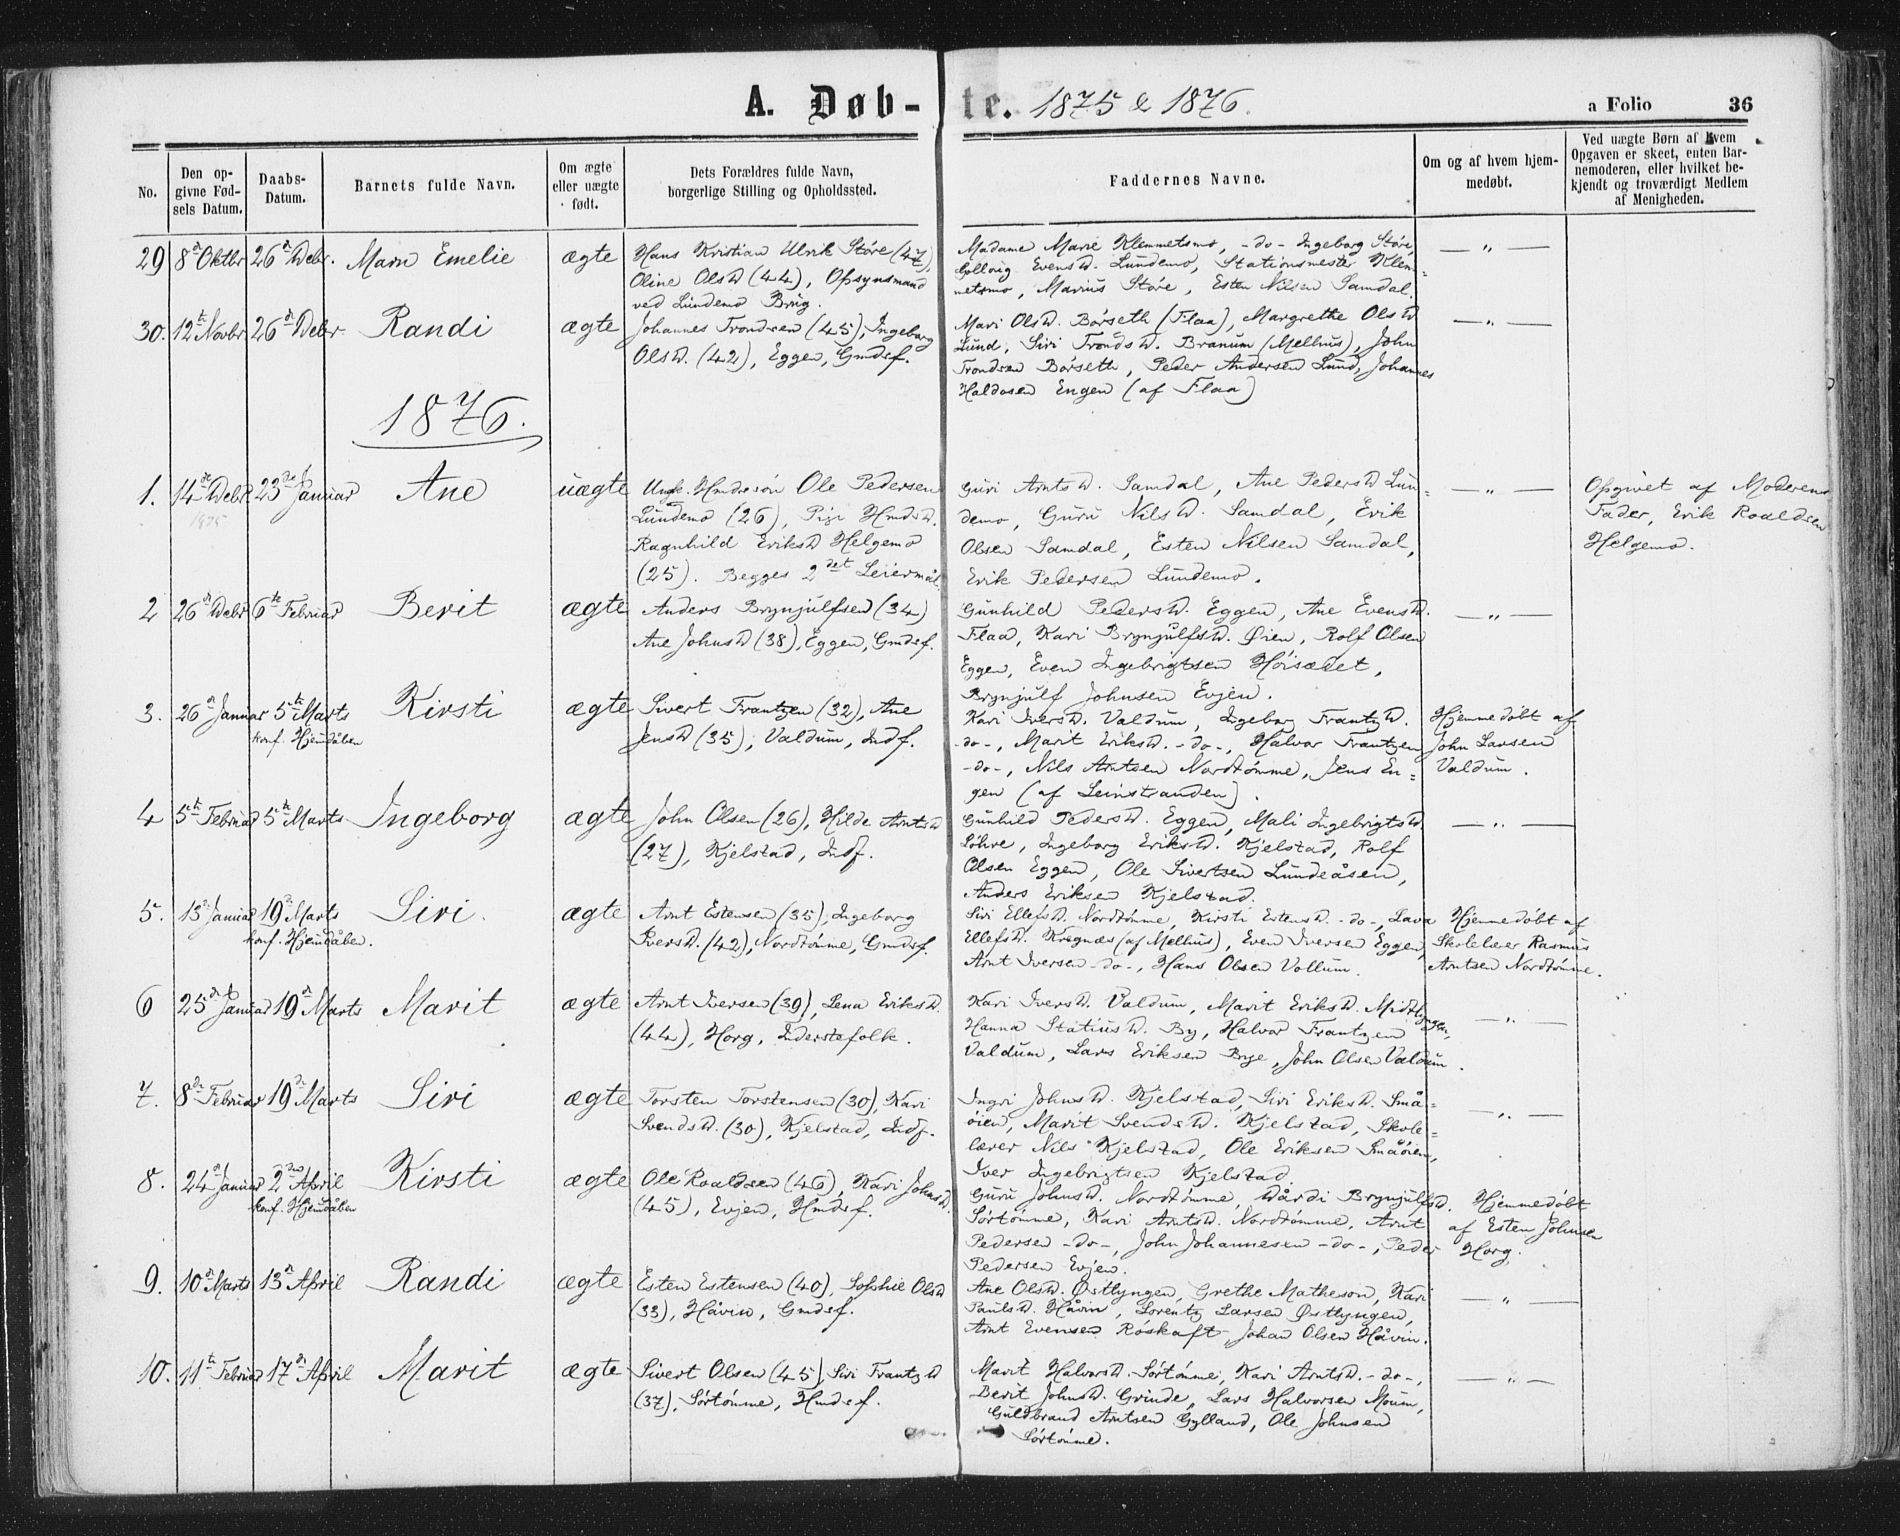 A. Døb-te. 1875 & 1876.
a Folio 36
No.
Den opgivne Fødsels Datum.
Daabs-Datum.
Barnets fulde Navn.
Om ægte eller uægte født.
Dets Forældres fulde Navn, borgerlige Stilling og Opholdssted.
Faddernes Navne.
Om og af hvem hjemmedøbt.
Ved uægte Børn af hvem Opgaven er skeet, enten Barnemoderen, eller hvilket bekjendt og troværdigt Medlem af Menigheden.
29 8de Oktbr 26de Debr. Maren Emelie ægte
Hans Kristian Ulrik Støre (47),
Oline Olsd (44), Opsynsmand
ved Lundemo Brug.
Madame Marie Klemmetsmo, -do- Ingeborg Støre,
Gollaug Evensd. Lundemo, Stationsmester Klem=
metsmo, Marius Støre, Esten Nilsen Samdal.
— „ —
30. 12te Novbr 26de Debr. Randi ægte
Johannes Trondsen (45), Ingeborg
Olsd. (42), Eggen, Gmdsf.
Mari Olsd. Børseth (Flaa), Margrethe Olsd
Lund, Siri Trondsd. Branum (Melhus), John
Trondsen Børseth, Peder Andersen Lund, Johannes
Haldosen Engen (af Flaa)
— „ —
1876.
1. 14de Debr 1875 23de Januar Ane uægte
Ungk. Hmdssøn Ole Pedersen
Lundemo (26), Pige Hmdsd.
Ragnhild Eriksd Helgemo
(25). Begges 2det Leiermål.
Guri Arntsd. Samdal, Ane Pedersd Lun=
demo, Guru Nilsd. Samdal, Erik
Olsen Samdal, Esten Nilsen Samdal,
Erik Pedersen Lundemo.
— „ —
Opgivet af Moderens
Fader, Erik Roaldsen
Helgemo.
2 26de Debr 6te Februar Berit ægte
Anders Brynjulfsen (34)
Ane Johnsd (38), Eggen, Gmdsf.
Gunhild Pedersd. Eggen, Ane Evensd.
Flaa, Kari Brynjulfsd. Øien, Rolf Olsen
Eggen, Even Ingebrigtsen Høisædet,
Brynjulf Johnsen Evjen.
— „ —
3. 26de Januar 5te Marts Kirsti ægte
konf. Hjemdåben
Sivert Frantzen (32), Ane
Jensd (35), Valdum, Indf.
Kari Iversd. Valdum, Ingeborg Frantzd.
-do-, Marit Eriksd. -do-, Halvor Frantzen
-do-, Nils Arntsen Nordtømme, Jens En=
gen (af Leinstranden).
Hjemmedøbt af
John Larsen
Valdum.
4 5te Februar 5te Marts Ingeborg ægte
John Olsen (26), Hilde Arntsd
(27), Kjelstad, Indf.
Gunhild Pedersd. Eggen, Mali Ingebrigtsd
Løhre, Ingeborg Eriksd. Kjelstad, Rolf
Olsen Eggen, Ole Sivertsen Lundeåsen,
Anders Eriksen Kjelstad.
— „ —
5. 13de Januar 19de Marts Siri. ægte
konf. Hjemdåben.
Arnt Estensen (35), Ingeborg
Iversd. (42), Nordtømme, Gmdsf.
Siri Ellefsd. Nordtømme, Kirsti Estensd. -do-, Lava
Ellefsd. Kregnæs (af Melhus), Even Iversen Eggen,
Arnt Iversen -do-, Hans Olsen Vollum.
Hjemmedøbt af
Skolelærer Rasmus
Arntsen Nordtømme.
6 25de Januar 19de Marts Marit ægte
Arnt Iversen (39), Lena Eriksd.
(44), Horg, Inderstefolk.
Kari Iversd. Valdum, Marit Eriksd. Midtlyngen,
Hanna Statiusd. By, Halvor Frantzen
Valdum, Lars Eriksen Bye, John Olsen Valdum.
— „ —
7. 8de Februar 19de Marts Siri ægte
Torsten Torstensen (30), Kari
Svendsd. (30), Kjelstad, Indf.
Ingri Johnsd. Kjelstad, Siri Eriksd. Små=
øien, Marit Svendsd. Kjelstad, Skole=
lærer Nils Kjelstad, Ole Eriksen Småøien,
Iver Ingebrigtsen Kjelstad.
— „ —
8. 24de Januar 2den April Kirsti ægte
konf. Hjemdåben
Ole Roaldsen (46), Kari Johnsd.
(45), Evjen, Hmdsf.
Guru Johnsd. Nordtømme, Dårdi Brynjulfsd.
Sørtømme, Kari Arntsd. Nordtømme, Arnt
Pedersen -do-, John Johannesen -do-, Peder
Pedersen Evjen.
Hjemmedøbt
af Esten Johnsen
Horg.
9. 10de Marts 13de April Randi ægte
Esten Estensen (40), Sophie Olsd
(33), Håvin, Gmdsf.
Ane Olsd. Østlyngen, Grethe Matheson, Kari
Paulsd. Håvin, Lorentz Larsen Østlyngen,
Arnt Evensen Røskaft, Johan Olsen Håvin.
— „ —
10. 11te Februar 17de April Marit ægte
Sivert Olsen (45), Siri Frantzd
(37), Sørtømme, Hmdsf.
Marit Halvorsd. Sørtømme, Kari Arntsd. -do-,
Berit Johnsd. Grinde, Lars Halvorsen Moum,
Guldbrand Arntsen Gylland, Ole Johnsen
Sørtømme.
— „ —